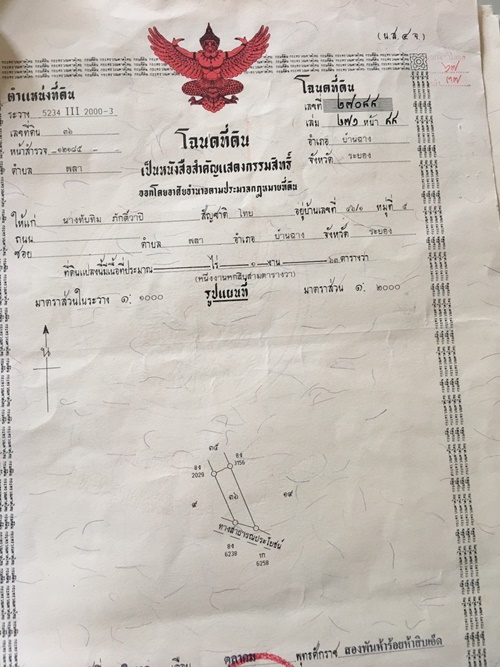 (น.ส. ๔ จ.)
ตำแหน่งที่ดิน
ระวาง 5234 III 2000-3
เลขที่ดิน ๓๖
หน้าสำรวจ ๑๒๑๘๕
ตำบล พลา
โฉนดที่ดิน
เลขที่ ๒๗๐๙๙
เล่ม ๒๗๑ หน้า ๙๙
อำเภอ บ้านฉาง
จังหวัด ระยอง
โฉนดที่ดิน
เป็นหนังสือสำคัญแสดงกรรมสิทธิ์
ออกโดยอาศัยอำนาจตามประมวลกฎหมายที่ดิน
ให้แก่ นางทับทิม ภักดิ์วาปี สัญชาติ ไทย อยู่บ้านเลขที่ ๔๖/๑ หมู่ที่ ๕
ถนน
ซอย ตำบล พลา อำเภอ บ้านฉาง จังหวัด ระยอง
ที่ดินแปลงนี้มีเนื้อที่ประมาณ ไร่ ๑ งาน ๖๓ ตารางวา
(หนึ่งงานหกสิบสามตารางวา)
มาตราส่วนในระวาง ๑: ๑๐๐๐ รูปแผนที่ มาตราส่วน ๑: ๒๐๐๐
น
๓๕
ฮง 2029
ฮง 3156
๔
๓๖
๑๙
ทางสาธารณประโยชน์
ฮง 6238
6258
ตุลาคม พุทธศักราช สองพันห้าร้อยห้าสิบเอ็ด